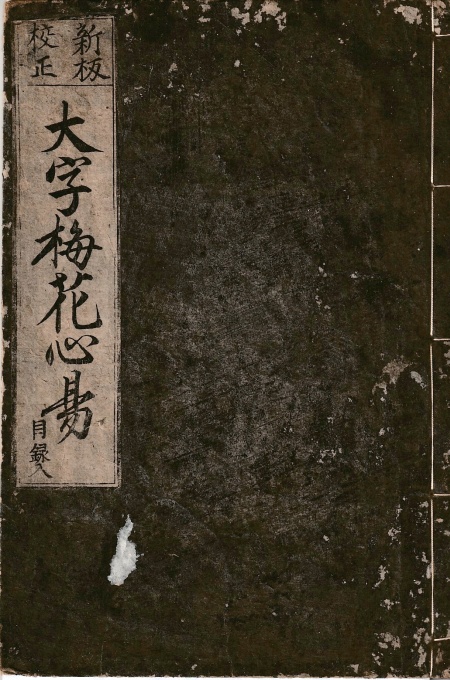 新板
校正
大字梅花心易
目録入